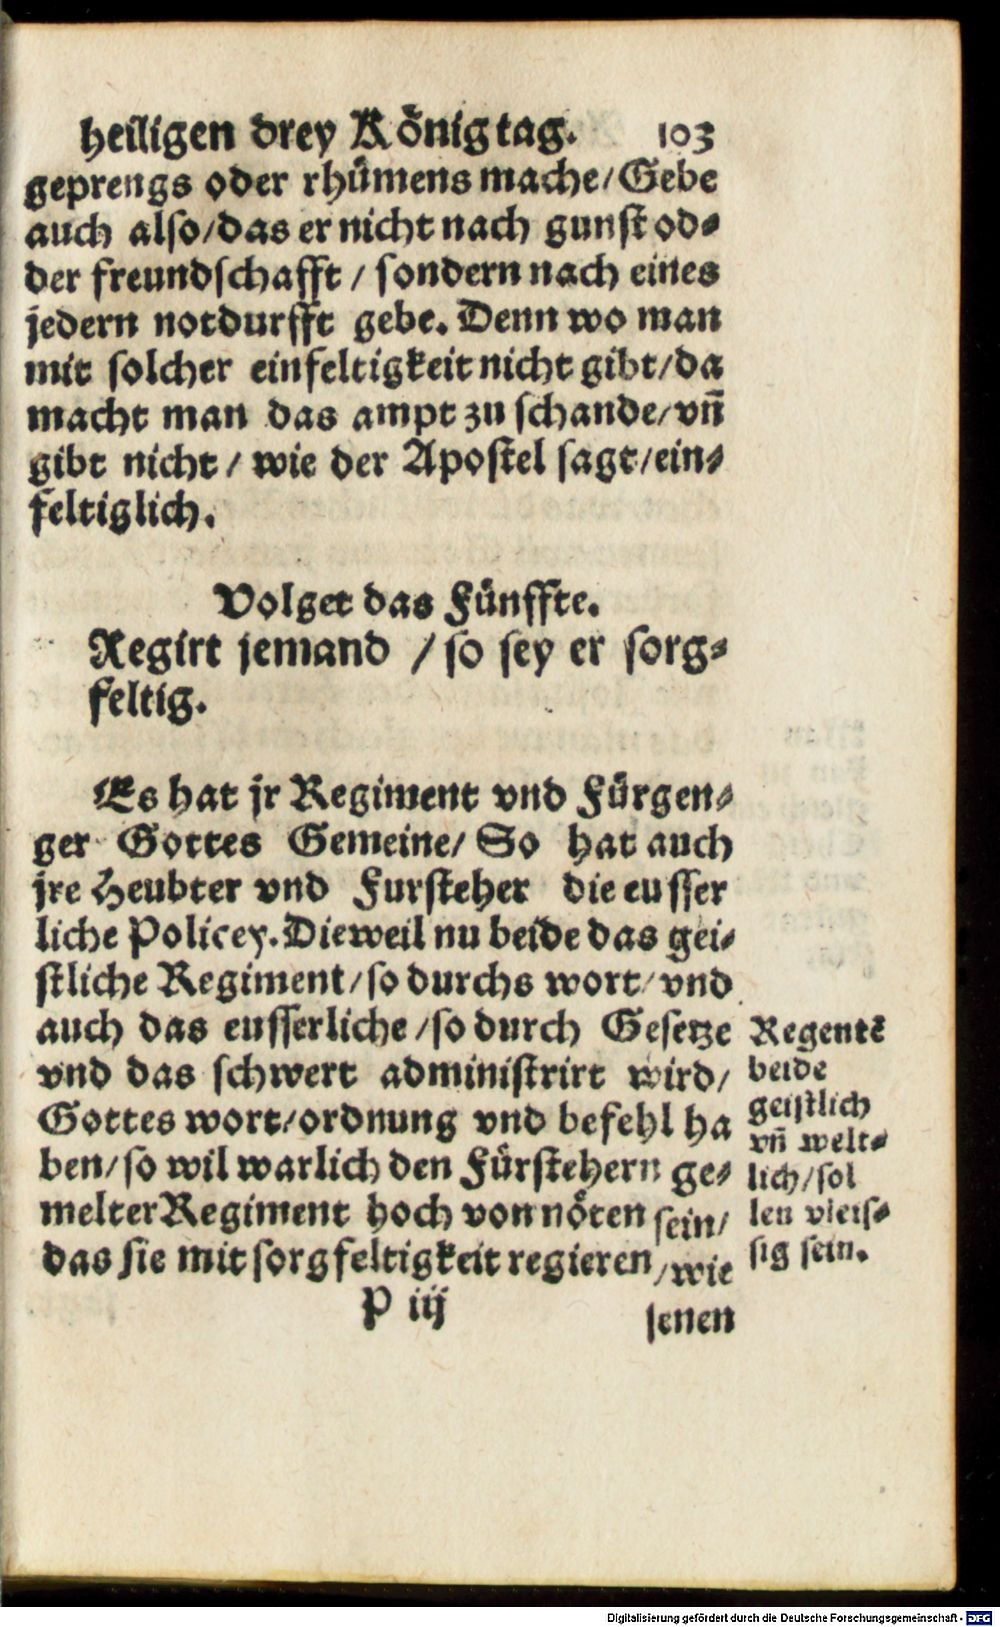 heiligen drey König tag. 103
geprengs oder rhümens mache/Gebe
auch also/das er nicht nach gunst od⸗
der freundschafft / sondern nach eines
jedern notdurfft gebe. Denn wo man
mit solcher einfeltigkeit nicht gibt/da
macht man das ampt zu schande/vn̄
gibt nicht / wie der Apostel sagt/ein⸗
feltiglich.
Volget das Fünffte.
Regirt jemand / so sey er sorg⸗
feltig.
Es hat jr Regiment vnd Fürgen⸗
ger Gottes Gemeine/ So hat auch
jre Heubter vnd Fursteher die eusser
liche Policey. Dieweil nu beide das gei⸗
stliche Regiment/so durchs wort/vnd
auch das eusserliche/so durch Gesetze
vnd das schwert administrirt wird/
Gottes wort/ordnung vnd befehl ha
ben/so wil warlich den Fürstehern ge⸗
melter Regiment hoch von nöten sein/
das sie mit sorgfeltigkeit regieren/wie
Regentē
beide
geistlich
vn̄ welt⸗
lich/sol
len vleis⸗
sig sein.
P iij jenen
Digitalisierung gefördert durch die Deutsche Forschungsgemeinschaft - DFG